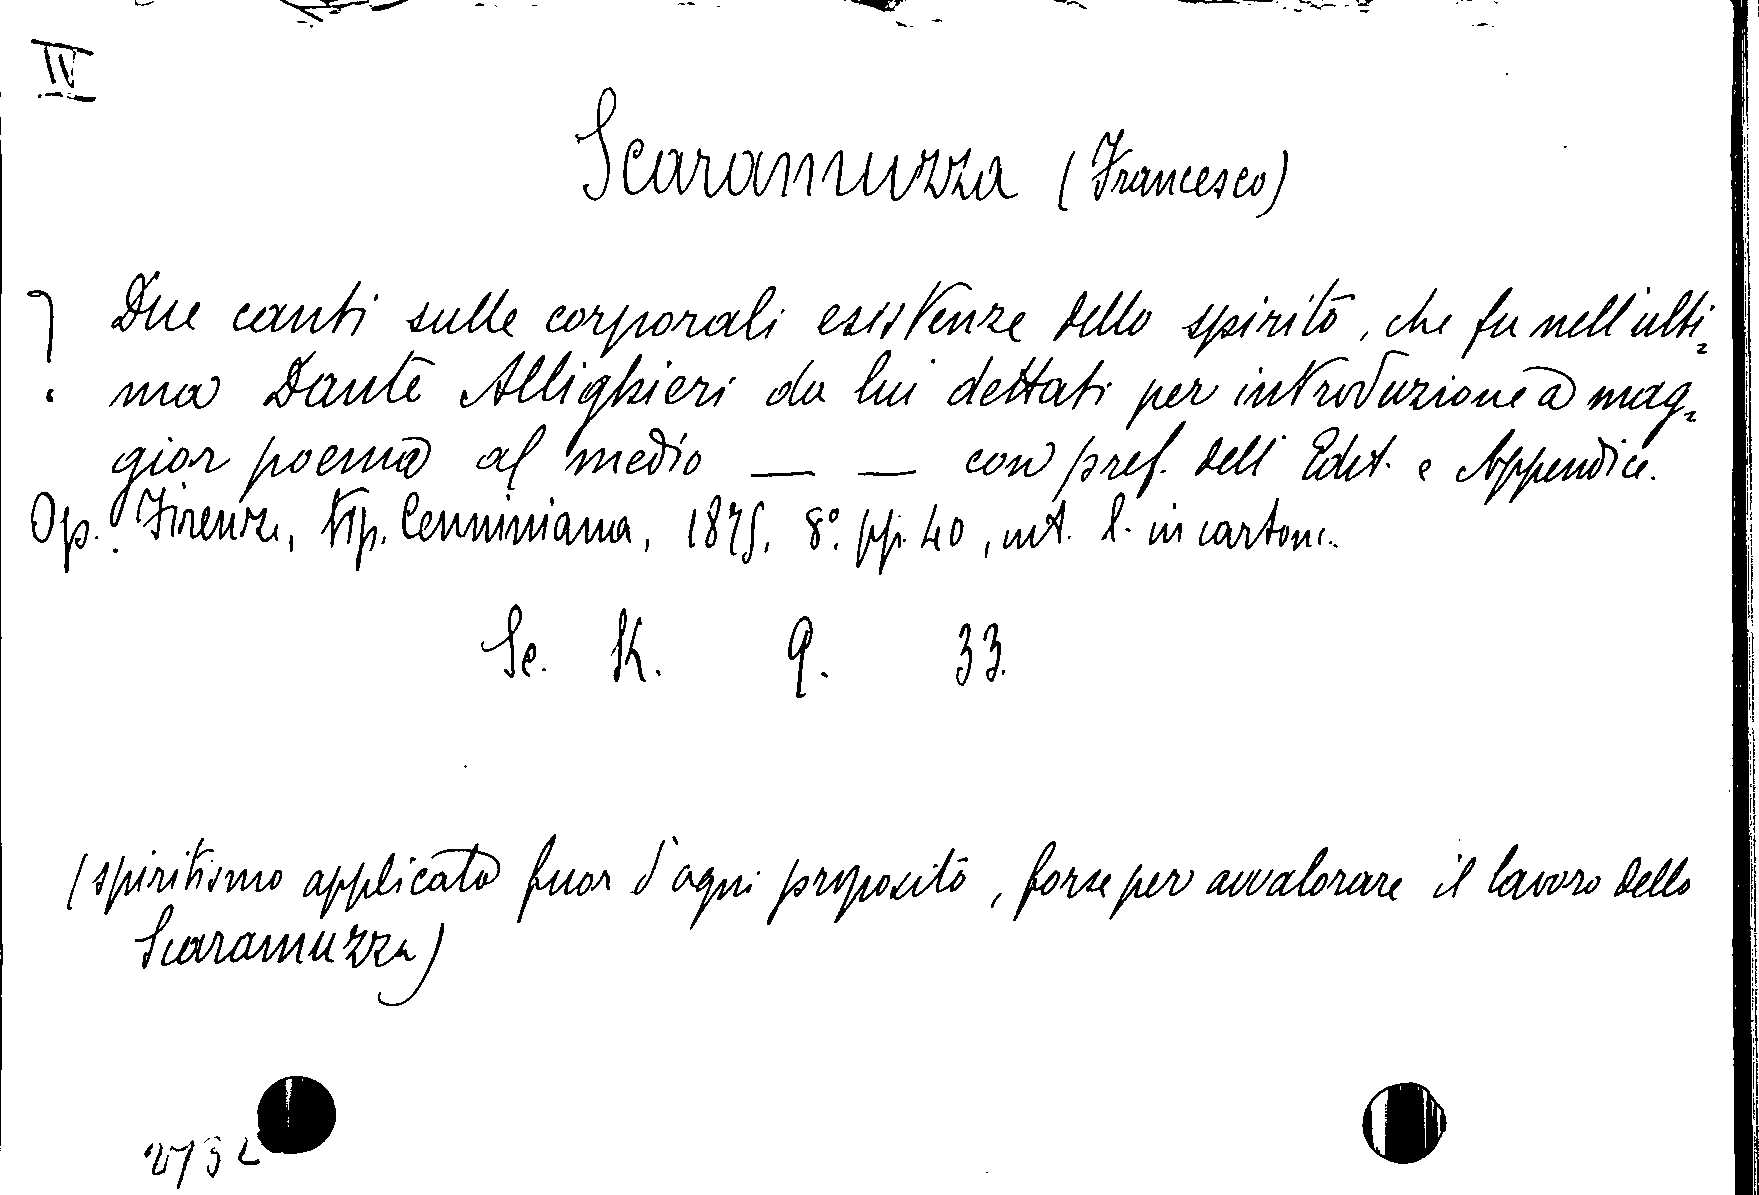 IV
Scaramuzza (Francesco)
? Due canti sulle corporali esistenze dello spirito, che fu nell'ulti-
ma Dante Allighieri da lui dettati per introduzione a mag-
gior poema al medio — — con pref. dell' Edit. e Appendice.
Op. Firenze, tip. Cenniniana, 1875, 8º. pp. 40, int. l. in carton.
Sc. K. 9. 33.
(spiritismo applicato fuor d'ogni proposito, forse per avvalorare il lavoro dello
Scaramuzza)
2732